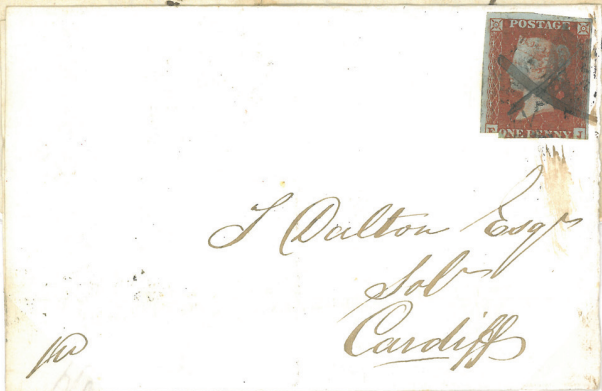 POSTAGE
ONE PENNY
J Dalton Esqr
Solr
Cardiff